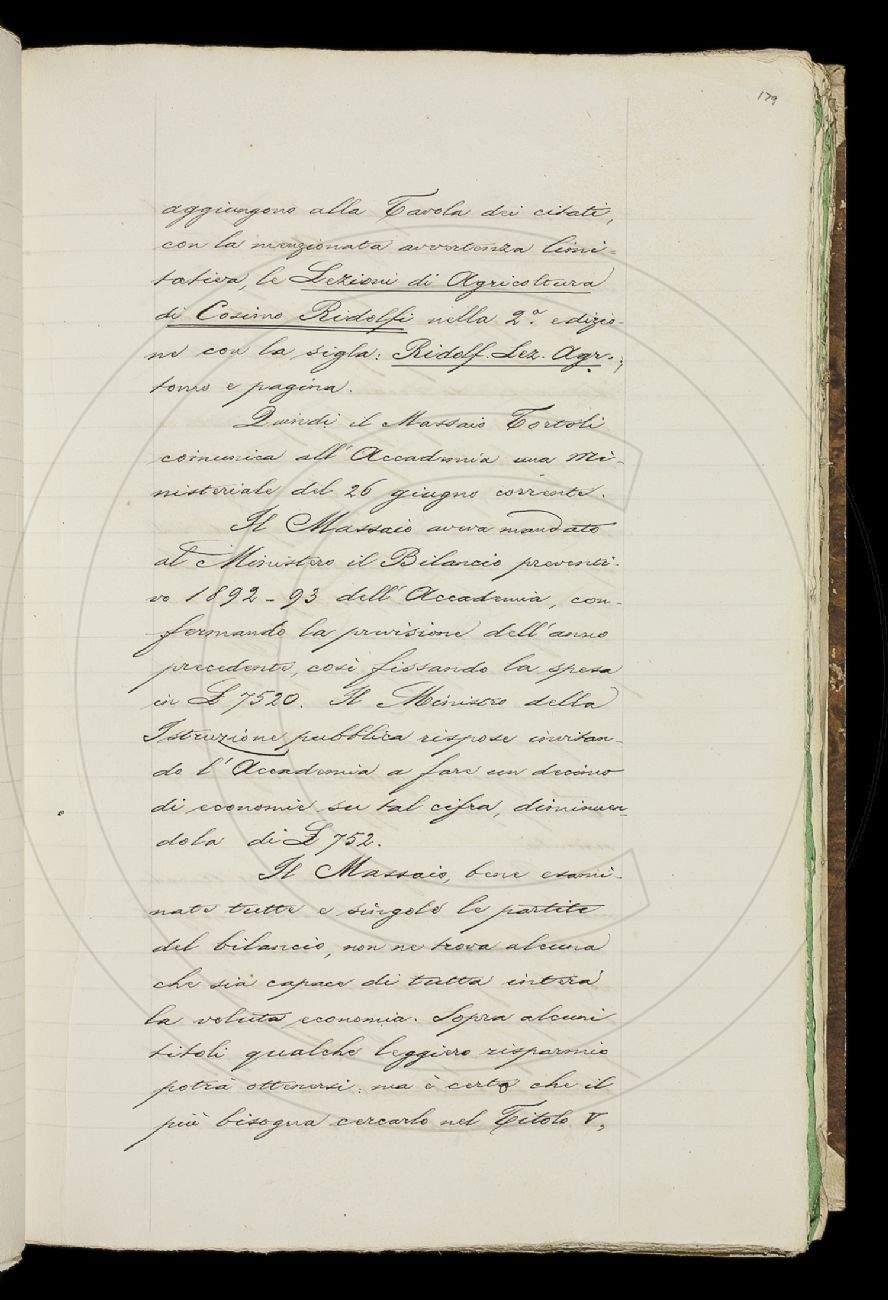 179
aggiungono alla Tavola dei citati,
con la menzionata avvertenza limi-
tativa, le Lezioni di Agricoltura
di Cosimo Ridolfi nella 2ª edizio-
ne con la sigla: Ridolf. Lez. Agr.;
tomo e pagina.
Quindi il Massaio Tortoli
comunica all'Accademia una Mi-
nisteriale del 26 giugno corrente.
Il Massaio aveva mandato
al Ministero il Bilancio preventi-
vo 1892-93 dell'Accademia, con-
fermando la previsione dell'anno
precedente, così fissando la spesa
in £ 7520. Il Ministro della
Istruzione pubblica rispose invitan-
do l'Accademia a fare un decimo
di economie su tal cifra, diminuen-
dola di £ 752.
Il Massaio, bene esami-
nate tutte e singole le partite
del bilancio, non ne trova alcuna
che sia capace di tutta intera
la voluta economia. Sopra alcuni
titoli qualche leggiero risparmio
potrà ottenersi: ma è certo che il
più bisogna cercarlo nel Titolo V,